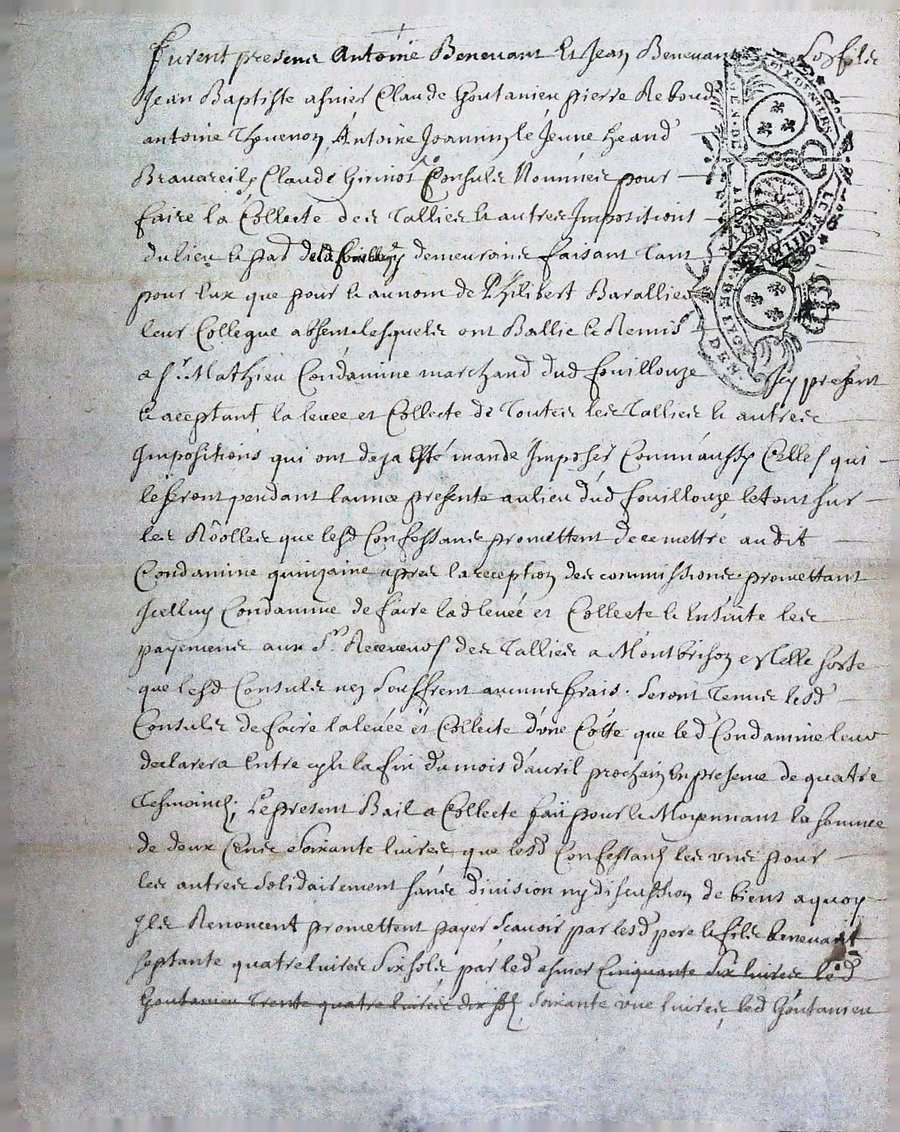 furent presens Antoine Benevant et Jean Benevant son fils
Jean Baptiste asnier Claude Goutanieu pierre Reboud
antoine Thevenon, Antoine Joannin le Jeune
Claude Girinot Consuls Nommés pour
faire la Collecte des Tallies et autres Impositions
du lieu et par demeurans faisant tant
pour Eux que pour et au nom de Philibert Barallier
leur Collegue absent lesquels ont Ballié et Remis
a Sr. Mathieu Condamine marchand dud fouillouze Icy present
et aceptant la levée et Collecte de Toutes les Tallies et autres
Impositions qui ont deja esté mandé Imposer Comm'aussy Celles qui
le seront pendant lannee presente au lieu dud fouillouze le tout sur
les Roolles que lesd Confessans promettent de remettre audit
Condamine quinzaine apres la reception des commissions promettant
Icelluy Condamine de faire lad levée et Collecte et Ensuite les
payemens aux Srs Receveurs des Tallies a Montbrison en telle sorte
que lesd Consuls nen souffrent aucuns frais. Seront Tenus lesd
Consuls de faire la levée et Collecte d'une Cotte que led Condamine leur
declarera Entre cy et la fin du mois d'auril prochain En presence de quatre
Tesmoins, Le present Bail a Collecte fait pour et Moyennant la somme
de deux Cens soixante livres que lesd Confessans les uns pour
les autres solidairement sans division ny discussion de biens a quoy
Ils Renoncent promettent payer scavoir par lesd pere et fils benevant
septante quatre livres six sols par led asnier Cinquante six livres led
Goutanieu Trente quatre livres dix sols soixante une livres, led Goutanieu
GEN. DE
SIX DENIERS
LE FEUILLET